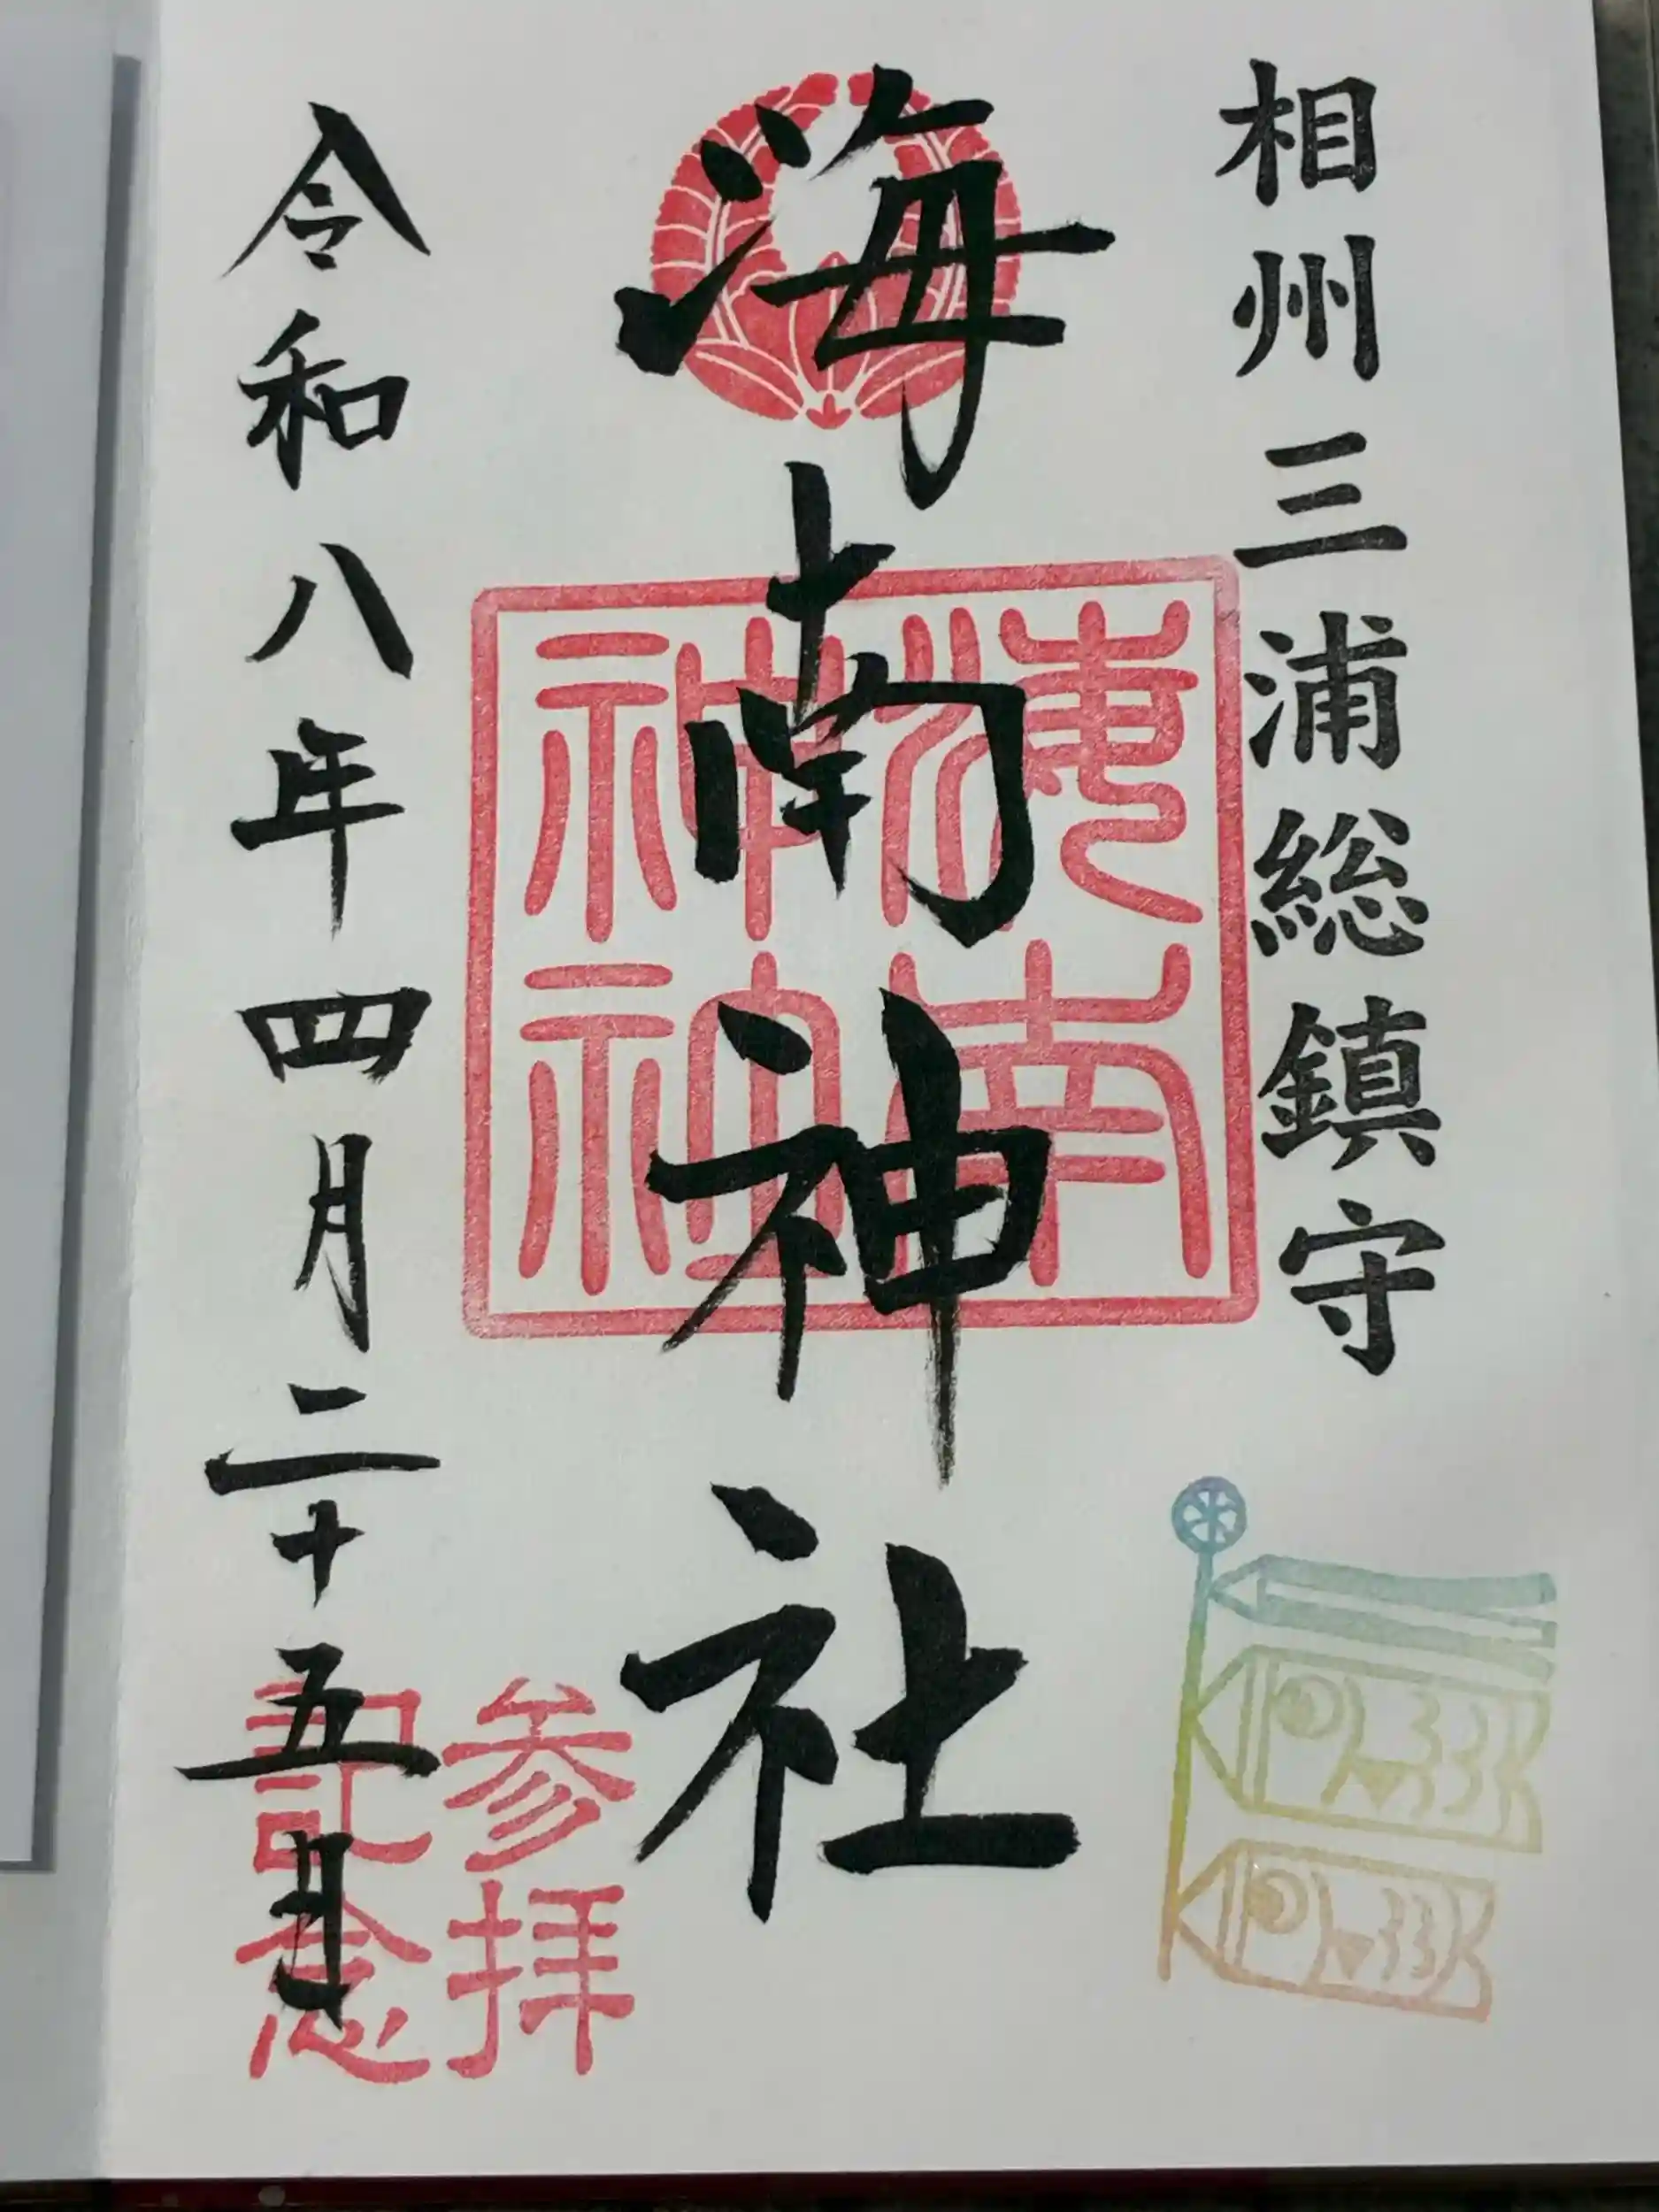 相州三浦総鎮守
海南神社
海南神社
参拝記念
令和八年四月二十五日